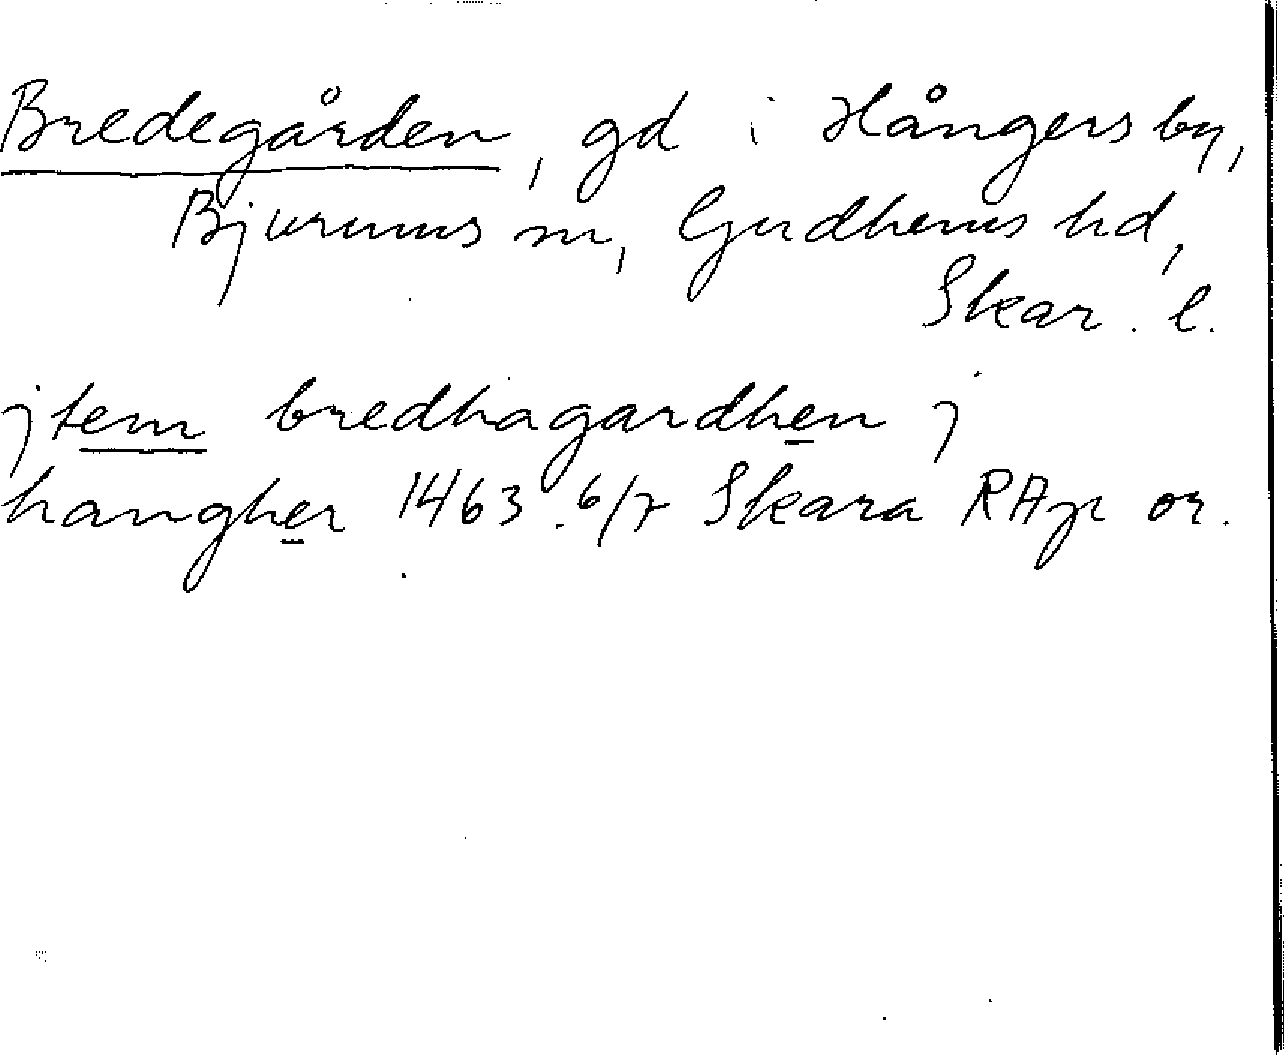 Bredegården, gd i Hångers by,
Bjurums sn, Gudhems hd,
Skar. l.
jtem bredhagardhen j
hangher 1463 6/7 Skara RAp or.